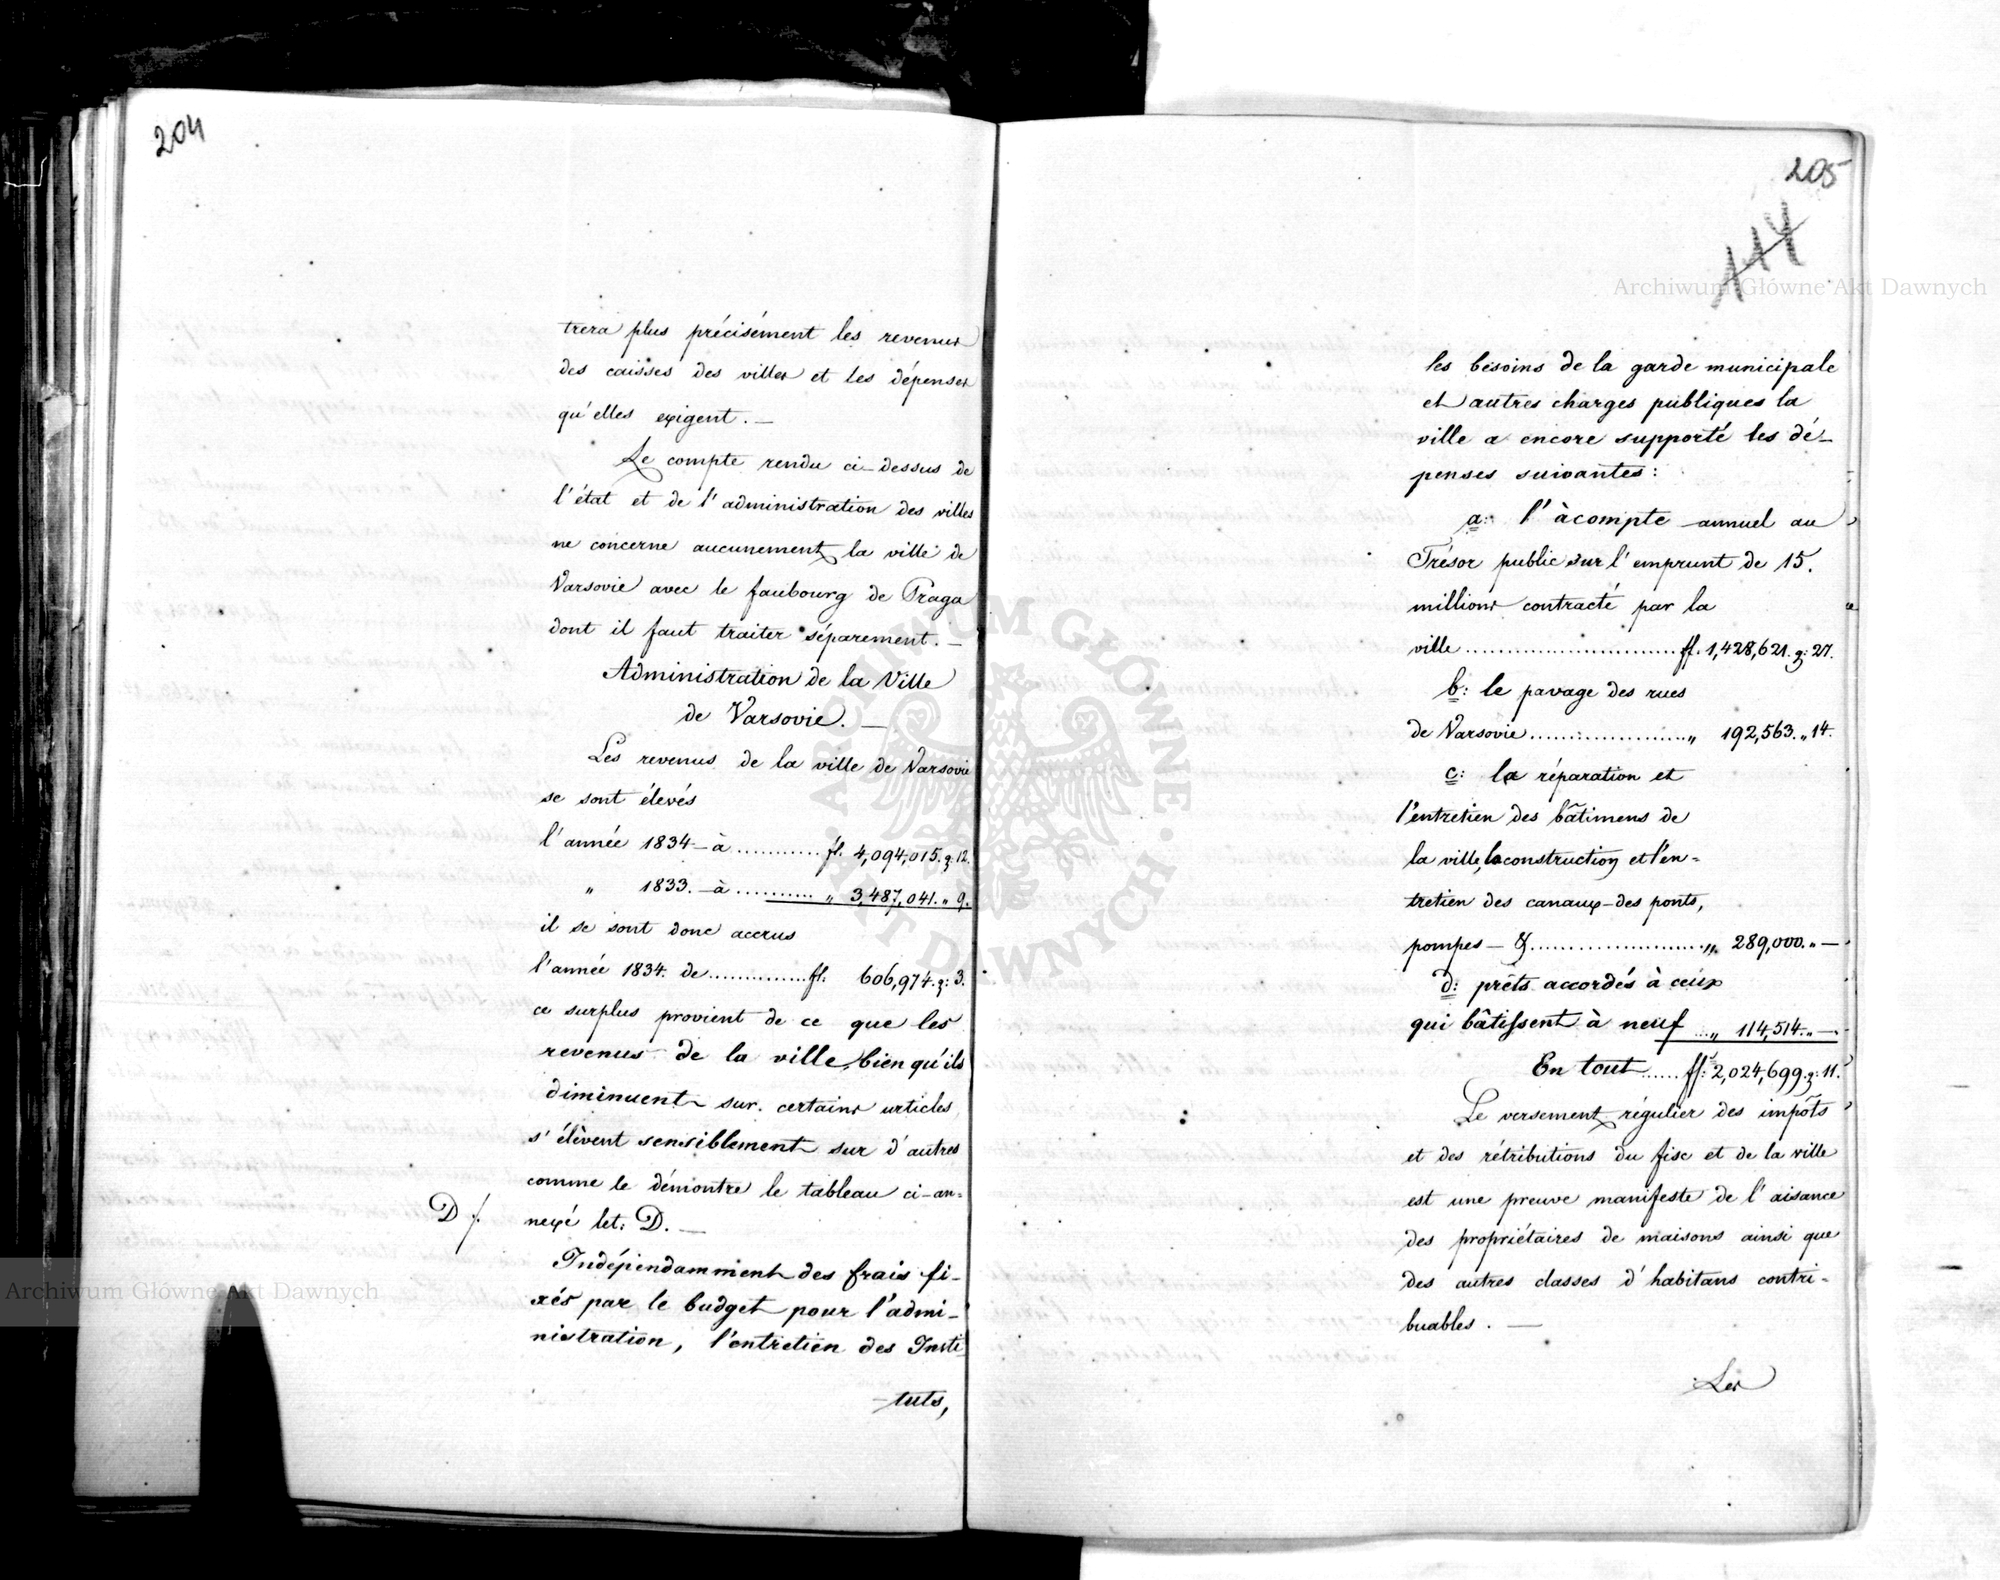 204
trera plus précisément les revenus
des caisses des villes et les dépenses
qu'elles exigent. —
Le compte rendu ci-dessus de
l'état et de l'administration des villes
ne concerne aucunement la ville de
Varsovie avec le faubourg de Praga
dont il faut traiter séparement. —
Administration de la Ville
de Varsovie. —
Les revenus de la ville de Varsovie
se sont élevés
l'année 1834 — à ........... fl. 4,094,015. g: 12.
„ 1833. — à .......... „ 3,487,041. „ 9.
il se sont donc accrus
l'année 1834. de .............. fl. 606,974. g: 3.
ce surplus provient de ce que les
revenus de la ville, bien qu'ils
diminuent sur certains articles
s'élèvent sensiblement sur d'autres
comme le démontre le tableau ci-an=
D /. nexé let: D. —
Indépendamment des frais fi-
xés par le budget pour l'admi-
nistration, l'entretien des Insti
— tuts,
205
114
les besoins de la garde municipale
et autres charges publiques la
ville a encore supporté les dé-
penses suivantes:
a: l'àcompte annuel au
Trésor public sur l'emprunt de 15.
millions contracté par la
ville ............................ fl. 1,428,621. g: 27.
b: le pavage des rues
de Varsovie ..................... „ 192,563. „ 14.
c: la réparation et
l'entretien des bâtimens de
la ville, la construction et l'en=
tretien des canaux — des ponts,
pompes — & ........................ „ 289,000. „ —
d: prêts accordés à ceux
qui bâtissent à neuf ... „ 114,514. „ —
En tout ...... fl: 2,024,699. g: 11.
Le versement régulier des impôts
et des rétributions du fisc et de la ville
est une preuve manifeste de l'aisance
des propriétaires de maisons ainsi que
des autres classes d'habitans contri-
buables. —
Les
Archiwum Główne Akt Dawnych
Archiwum Główne Akt Dawnych
ARCHIWUM GŁÓWNE · AKT DAWNYCH ·